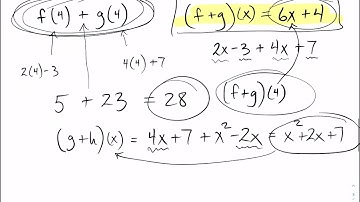 f(4) + g(4)
(f+g)(x) = 6x+4
2x-3 + 4x+7
2(4)-3
4(4)+7
5 + 23 = 28
(f+g)(4)
(g+h)(x) = 4x+7 + x²-2x = x²+2x+7